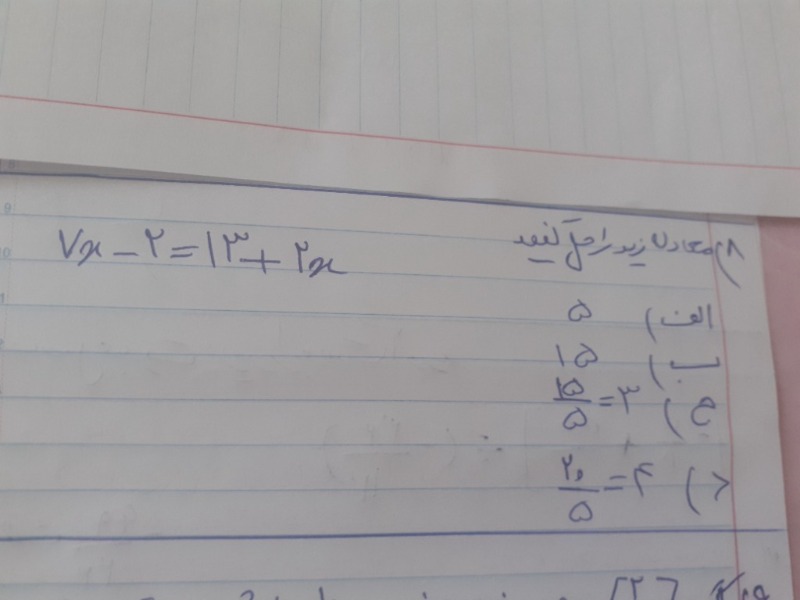 ۸) معادله زیر را حل کنید
۷x - ۲ = ۱۳ + ۲x
الف) ۵
ب) ۱۵
ج) ۱۵/۵ = ۳
د) ۲۰/۵ = ۴